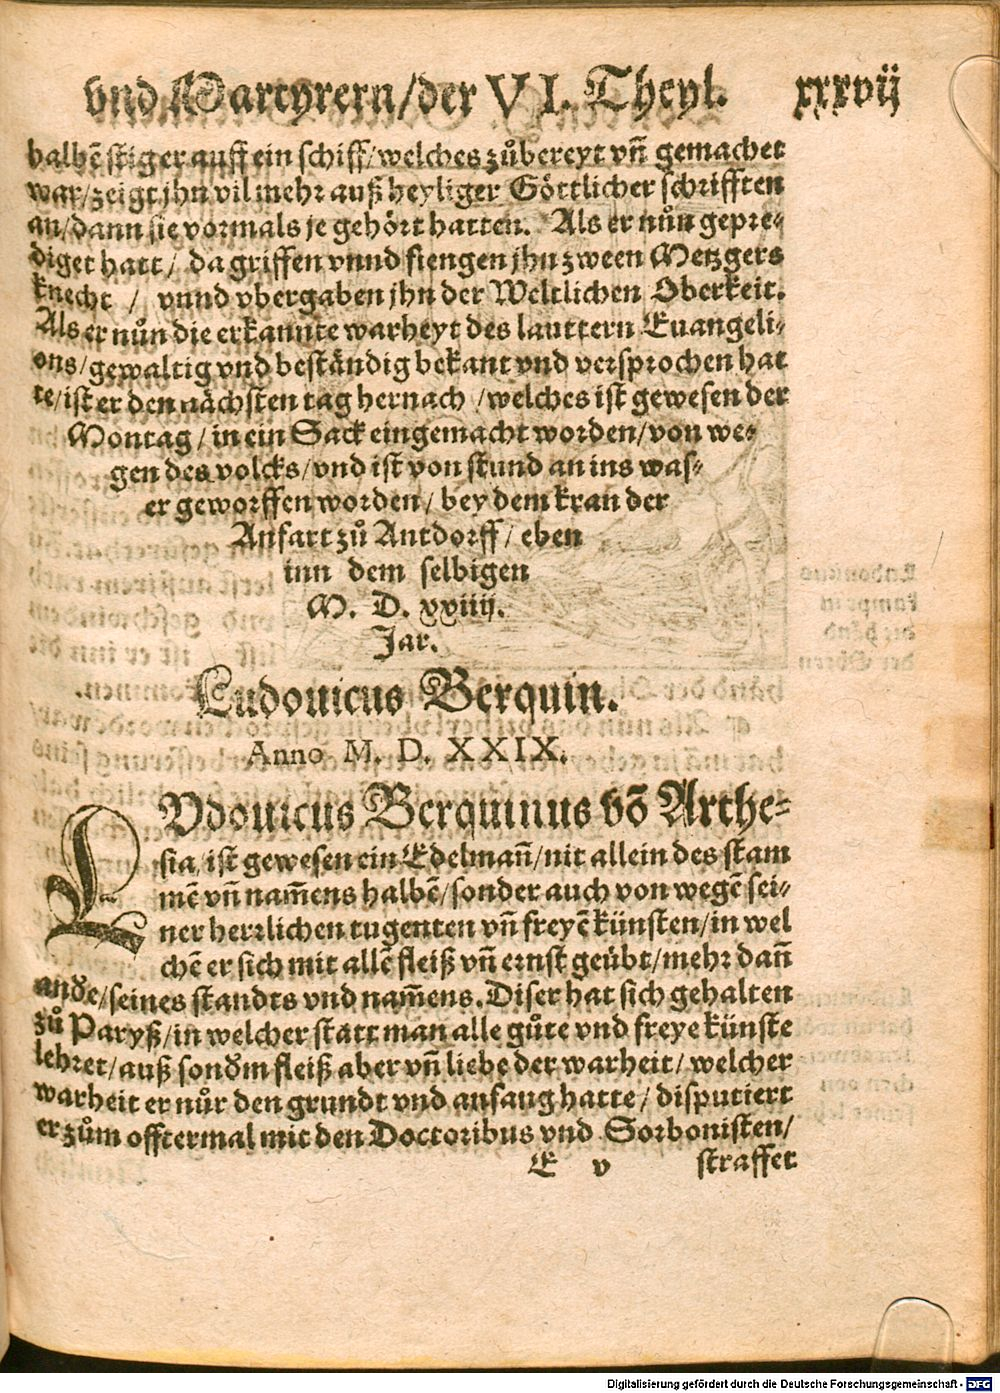 vnd Martyrern/der VI. Theyl. xxxvij
halbē stig er auff ein schiff/welches zůbereyt vñ gemachet
war/zeigt jhn vil mehr auß heyliger Göttlicher schrifften
an/dann sie vormals je gehört hatten. Als er nůn gepre-
diget hatt/ da griffen vnnd fiengen jhn zween Metzgers
knecht / vnnd vbergaben jhn der Weltlichen Oberkeit.
Als er nůn die erkannte warheyt des lauttern Euangeli-
ons/gewaltig vnd beständig bekant vnd versprochen hat
te/ist er den nächsten tag hernach /welches ist gewesen der
Montag/in ein Sack eingemacht worden/von we-
gen des volcks/vnd ist von stund an ins was-
er geworffen worden/bey dem kran der
Anfart zů Antdorff/ eben
inn dem selbigen
M. D. xxiiij.
Jar.
Ludouicus Berquin.
Anno M. D. XXIX.
LVdouicus Berquinus vō Arthe-
sia, ist gewesen ein Edelmañ/nit allein des stam
mē vñ nam̄ens halbē/sonder auch von wegē sei-
ner herrlichen tugenten vñ freyē künsten/in wel
chē er sich mit allē fleiß vñ ernst geübt/mehr dañ
andē/seines standts vnd nam̄ens. Diser hat sich gehalten
zů Paryß/in welcher statt man alle gůte vnd freye künste
lehret/auß sondm fleiß aber vñ liebe der warheit/welcher
warheit er nůr den grundt vnd anfang hatte/ disputiert
er zům offtermal mit den Doctoribus vnd Sorbonisten/
E v straffet
Digitalisierung gefördert durch die Deutsche Forschungsgemeinschaft - DFG